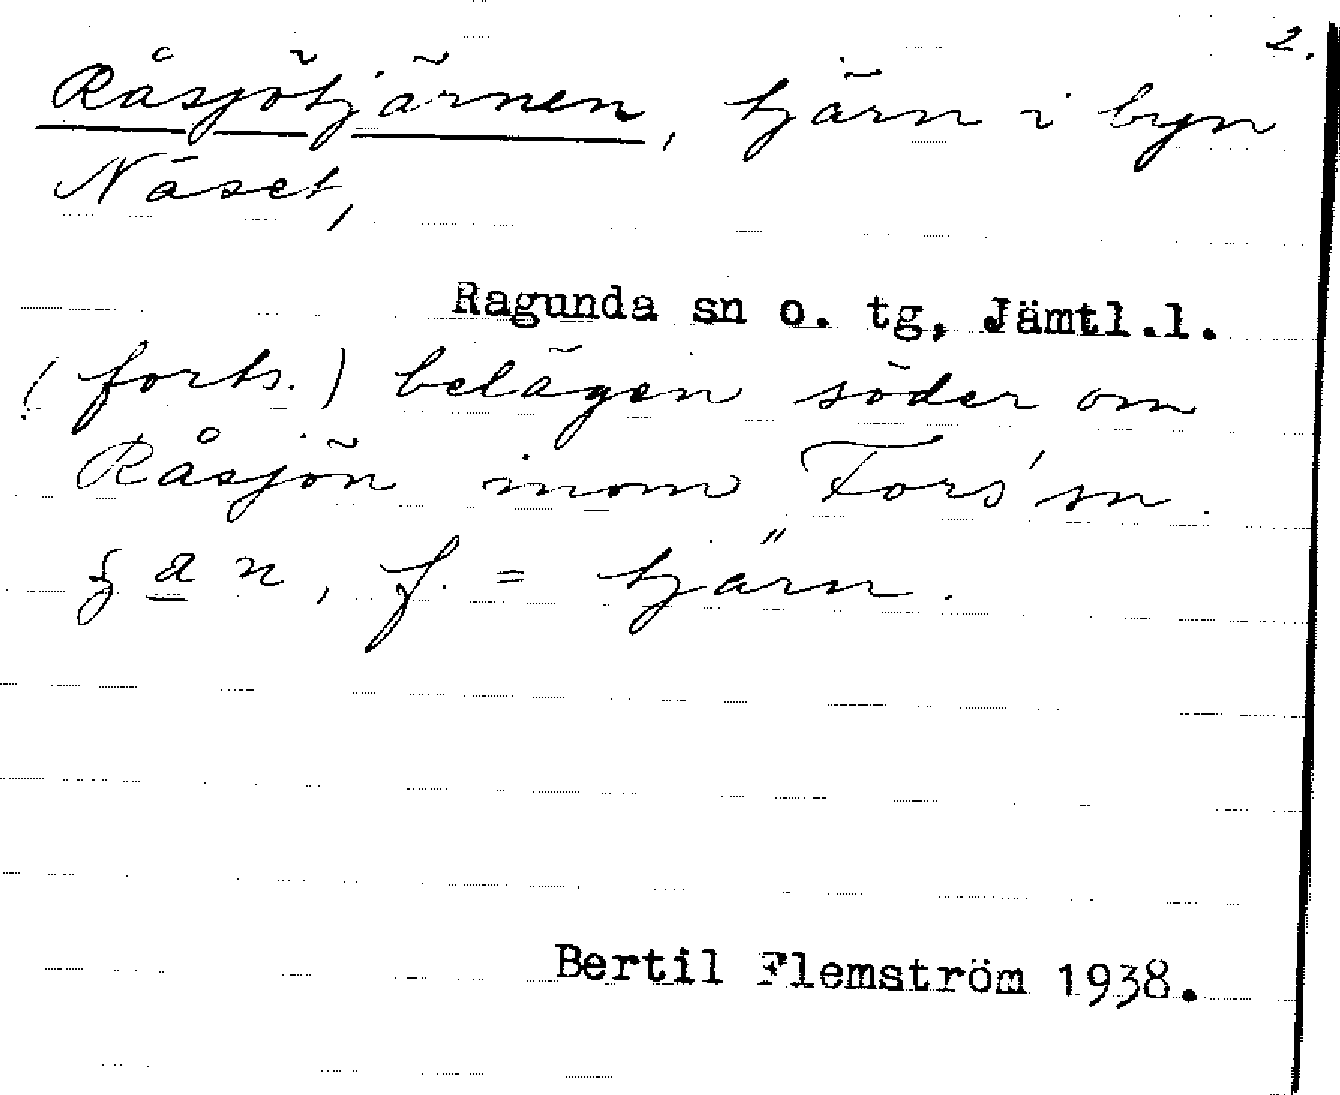 2.
Råsjötjärnen, tjärn i byn
Näset,
Ragunda sn o. tg, Jämtl.l.
(forts.) belägen söder om
Råsjön inom Fors' sn.
a n, f. = tjärn.
Bertil Flemström 1938.